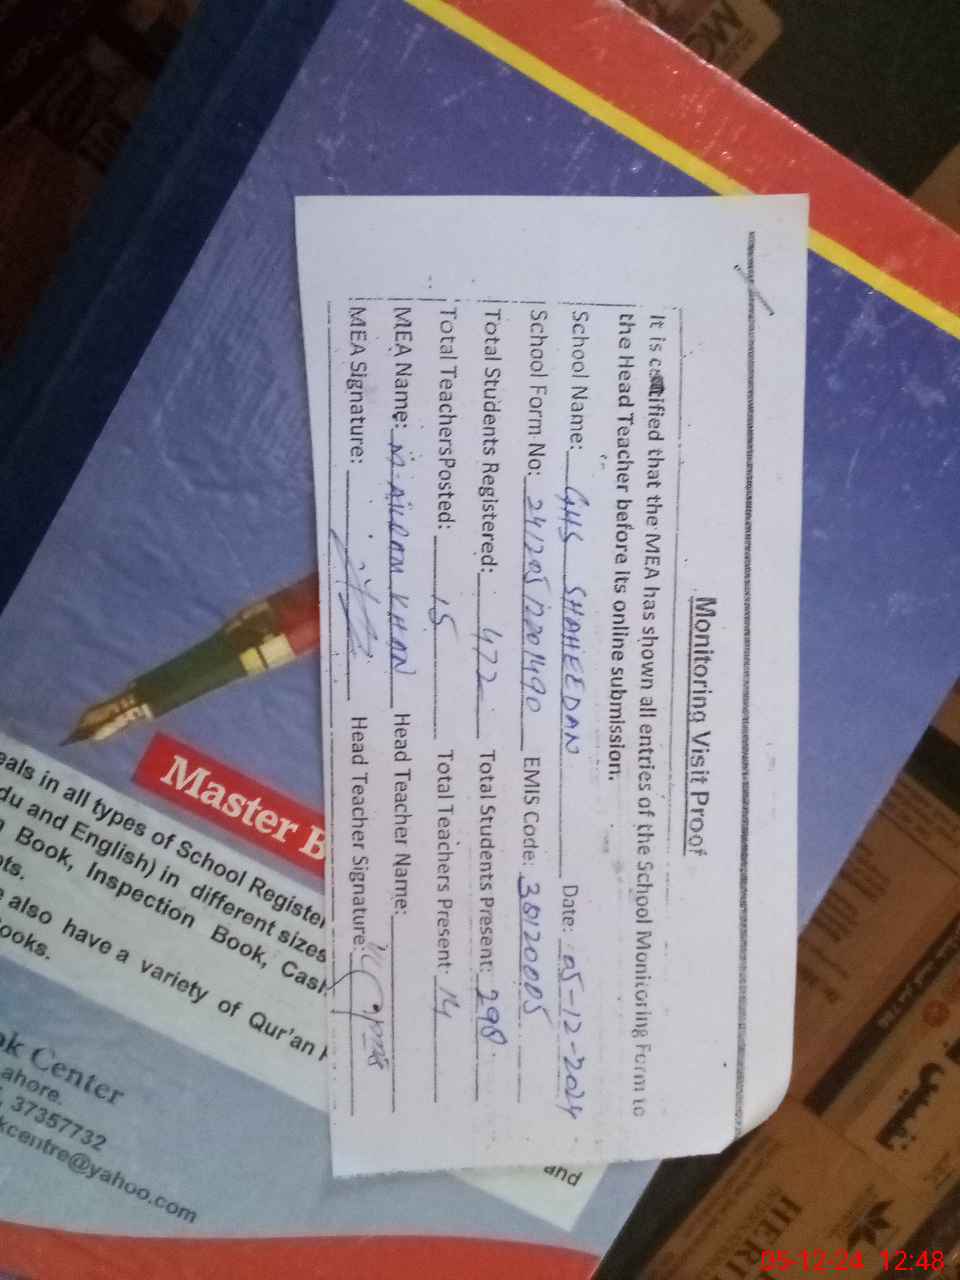 Monitoring Visit Proof
It is certified that the MEA has shown all entries of the School Monitoring Form to
the Head Teacher before its online submission.
School Name: GHS SHAHEEDAN Date: 05-12-2024
School Form No: 241205122011490 EMIS Code: 38120005
Total Students Registered: 472 Total Students Present: 298
Total TeachersPosted: 15 Total Teachers Present: 14
MEA Name: KHAN Head Teacher Name:
MEA Signature: Head Teacher Signature:
Master B
eals in all types of School Register
du and English) in different sizes
Book, Inspection Book, Cash
ts.
also have a variety of Qur'an
ooks.
and
ok Center
ahore.
37357732
kcentre@yahoo.com
HERI
05-12-24 12:48